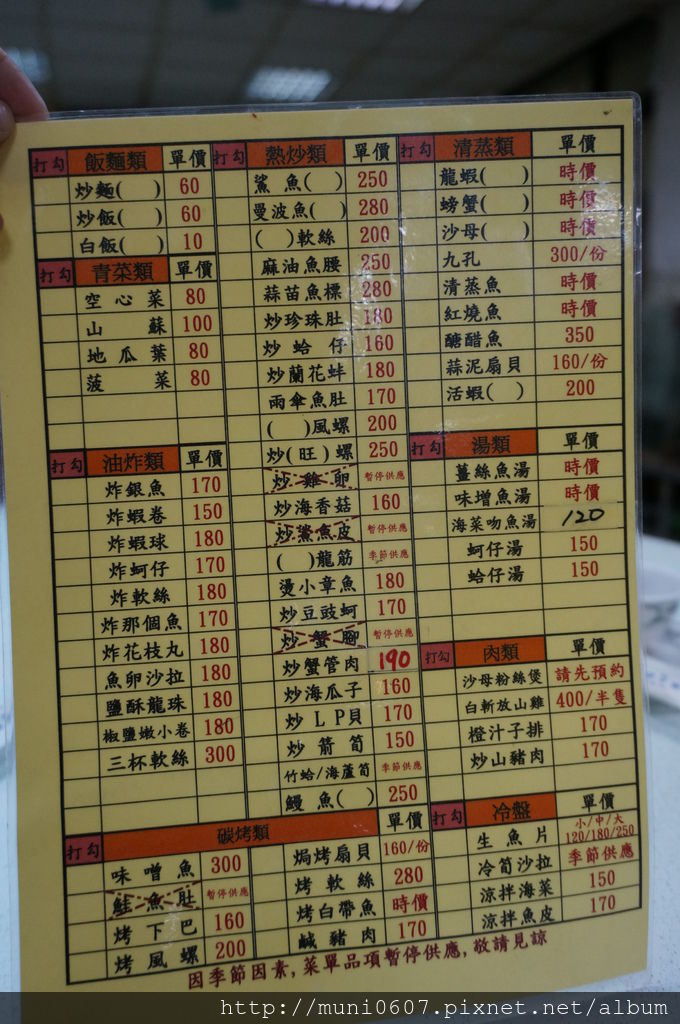 打勾 飯麵類 單價
炒麵( ) 60
炒飯( ) 60
白飯( ) 10
打勾 青菜類 單價
空心菜 80
山蘇 100
地瓜葉 80
菠菜 80
打勾 油炸類 單價
炸銀魚 170
炸蝦卷 150
炸蝦球 180
炸蚵仔 170
炸軟絲 180
炸那個魚 170
炸花枝丸 180
魚卵沙拉 180
鹽酥龍珠 180
椒鹽嫩小卷 180
三杯軟絲 300
打勾 熱炒類 單價
鯊魚( ) 250
曼波魚( ) 280
( )軟絲 200
麻油魚腰 250
蒜苗魚標 280
炒珍珠肚 180
炒蛤仔 160
炒蘭花蚌 180
雨傘魚肚 170
( )風螺 200
炒(旺)螺 250
炒雞卵 暫停供應
炒海香菇 160
炒鯊魚皮 暫停供應
( )龍筋 季節供應
燙小章魚 180
炒豆豉蚵 170
炒蟹腳 暫停供應
炒蟹管肉 190
炒海瓜子 160
炒LP貝 170
炒箭筍 150
竹蛤/海蘆筍 季節供應
鰻魚( ) 250
打勾 清蒸類 單價
龍蝦( ) 時價
螃蟹( ) 時價
沙母( ) 時價
九孔 300/份
清蒸魚 時價
紅燒魚 時價
醣醋魚 350
蒜泥扇貝 160/份
活蝦( ) 200
打勾 湯類 單價
薑絲魚湯 時價
味增魚湯 時價
海菜吻魚湯 120
蚵仔湯 150
蛤仔湯 150
打勾 肉類 單價
沙母粉絲煲 請先預約
白斬放山雞 400/半隻
橙汁子排 170
炒山豬肉 170
打勾 冷盤 單價
生魚片 小/中/大 120/180/250
冷筍沙拉 季節供應
涼拌海菜 150
涼拌魚皮 170
打勾 碳烤類 單價
味噌魚 300
鮭魚肚 暫停供應
烤下巴 160
烤風螺 200
焗烤扇貝 160/份
烤軟絲 280
烤白帶魚 時價
鹹豬肉 170
因季節因素,菜單品項暫停供應,敬請見諒
http://muni0607.pixnet.net/album